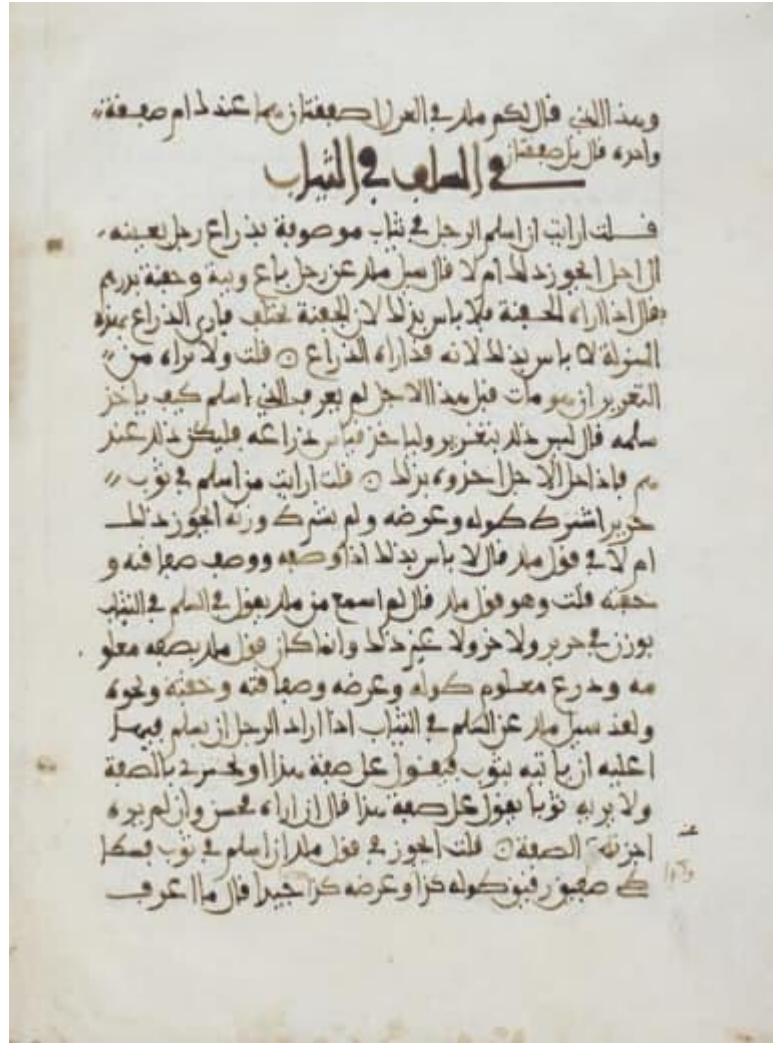 وهذا الذي قال لكم ملك في الغزل اصفقتان هما عندك ام صفقة
واحدة قال بل صفقتان
في السلف في الثياب
قلت ارايت ان اسلم الرجل في ثياب موصوفة بذراع رجل بعينه
الى اجل ايجوز ذلك ام لا قال سيل ملك عن رجل باع ويبة وحفنة بدرهم
فقال اذا اراه الحفنة فلا باس بذلك لان الحفنة تختلف فارى الذراع بهذه
المنزلة لا باس بذلك لانه قد اراه الذراع قلت ولا تراه من
التغرير ان هو مات قبل هذا الاجل لم يعرف الذي اسلم كيف ياخذ
سلمه قال ليس ذلك بتغرير ولياخذ قياس ذراعه فليكن ذلك عند
هم فاذا حل الاجل اخذوه بذلك قلت ارايت من اسلم في ثوب
حرير اشترط طوله وعرضه ولم يشترط وزنه ايجوز ذلك
ام لا في قول ملك قال لا باس بذلك اذا وصفه ووصف صفاقته و
خفته قلت وهو قول ملك قال لم اسمع من ملك يقول في السلم في الثياب
بوزن في حرير ولا خز ولا غير ذلك وانما كان قول ملك بصفة معلو
مة وذرع معلوم طوله وعرضه وصفاقته وخفته ونحوه
ولقد سيل ملك عن السلم في الثياب اذا اراد الرجل ان يسلم فيها
اعليه ان ياتيه بثوب فيقول على صفة هذا او يجزئ بالصفة
ولا يريه ثوبا يقول على صفة هذا قال ان اراه فحسن وان لم يره
اجزته الصفة قلت ايجوز في قول ملك ان اسلم في ثوب فسطا
طي صفيق رقيق طوله كذا وعرضه كذا جيدا قال ما اعرف